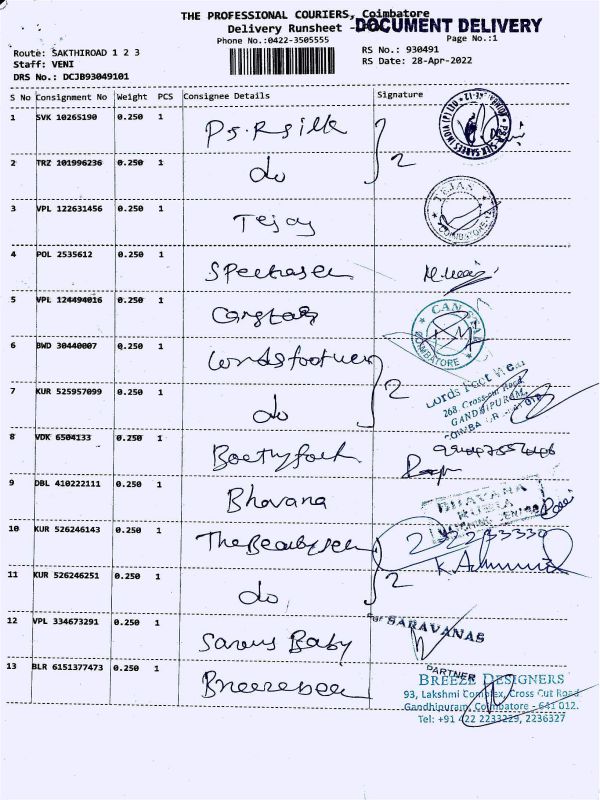 THE PROFESSIONAL COURIERS, Coimbatore
Delivery Runsheet - DOCUMENT DELIVERY
Phone No.:0422-3505555
Page No.:1
Route: SAKTHIROAD 1 2 3
RS No.: 930491
Staff: VENI
RS Date: 28-Apr-2022
DRS No.: DCJB93049101
S No Consignment No Weight PCS Consignee Details Signature
1 SVK 10265190 0.250 1 P.S.R silk
2 TRZ 101996236 0.250 1 do 2
3 VPL 122631456 0.250 1 Tejas
TEJAS
COIMBATORE
4 POL 2535612 0.250 1
5 VPL 124494016 0.250 1
COIMBATORE
6 BWD 30440007 0.250 1 Lordsfootwear
7 KUR 525957099 0.250 1 do 2
Lords Foot Wear
268, Cross Cut Road,
GANDHIPURAM,
8 VDK 6504133 0.250 1
9 DBL 410222111 0.250 1 Bhavana
BHAVANA
10 KUR 526246143 0.250 1
2233330
11 KUR 526246251 0.250 1 do 2
12 VPL 334673291 0.250 1 Saravs Baby
For SARAVANAS
PARTNER
13 BLR 6151377473 0.250 1
BREEZE DESIGNERS
93, Lakshmi Complex, Cross Cut Road
Gandhipuram, Coimbatore - 641 012.
Tel: +91 422 2233229, 2236327